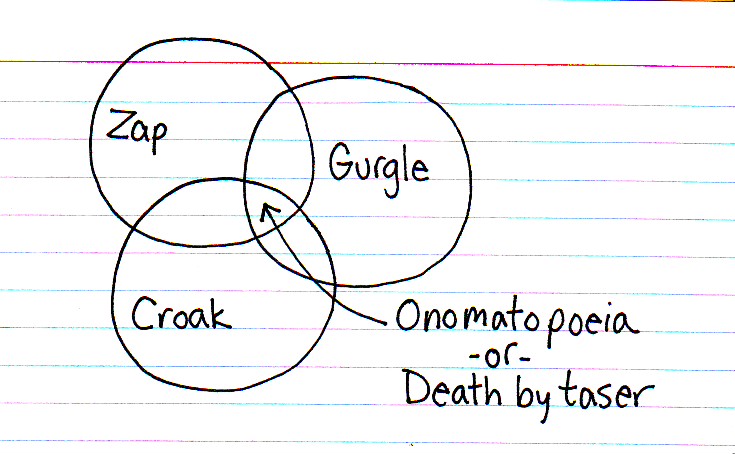 Zap
Gurgle
Croak
Onomatopoeia
-or-
Death by taser